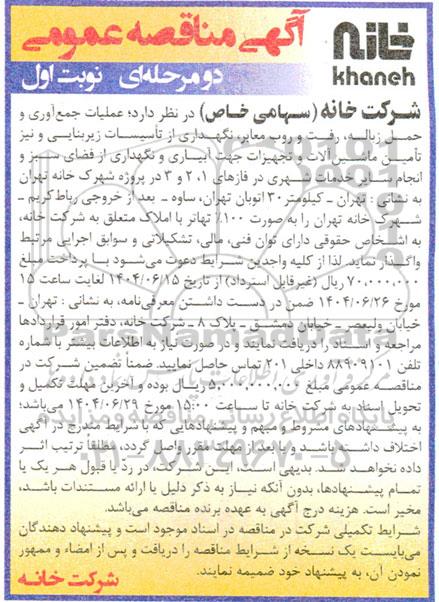 آگهی مناقصه عمومی
خانه
khaneh
دو مرحله‌ای نوبت اول
شرکت خانه (سهامی خاص) در نظر دارد؛ عملیات جمع‌آوری و
حمل زباله، رفت و روب معابر، نگهداری از تأسیسات زیربنایی و نیز
تأمین ماشین‌آلات و تجهیزات جهت آبیاری و نگهداری از فضای سبز و
انجام سایر خدمات شهری در فازهای ۲،۰۱ و ۳ در پروژه شهرک خانه تهران
به نشانی : تهران ـ کیلومتر ۳۰ اتوبان تهران، ساوه ـ بعد از خروجی رباط‌کریم ـ
شهرک خانه تهران را به صورت ۱۰۰٪ تهاتر با املاک متعلق به شرکت خانه،
به اشخاص حقوقی دارای توان فنی، مالی، تشکیلاتی و سوابق اجرایی مرتبط
واگذار نماید. لذا از کلیه واجدین شرایط دعوت می‌شود با پرداخت مبلغ
۷۰,۰۰۰,۰۰۰ ریال (غیرقابل استرداد) از تاریخ ۱۴۰۴/۰۶/۱۵ لغایت ساعت ۱۵
مورخ ۱۴۰۴/۰۶/۲۶ ضمن در دست داشتن معرفی‌نامه، به نشانی : تهران ـ
خیابان ولیعصر ـ خیابان دمشق ـ پلاک ۸ ـ شرکت خانه، دفتر امور قراردادها
مراجعه و اسناد را دریافت نمایند و در صورت نیاز به اطلاعات بیشتر با شماره
تلفن ۸۸۹۰۹۱۰۱ داخلی ۲۰۱ تماس حاصل نمایید. ضمناً تضمین شرکت در
مناقصه عمومی مبلغ ۵,۰۰۰,۰۰۰,۰۰۰ ریال بوده و آخرین مهلت تکمیل و
تحویل اسناد، به شرکت خانه تا ساعت ۱۵:۰۰ مورخ ۱۴۰۴/۰۶/۲۹ می‌باشد؛
به پیشنهادهای مشروط و مبهم و پیشنهادهایی که با شرایط مندرج در آگهی
اختلاف داشته باشد و یا بعد از مهلت مقرر واصل گردد، مطلقاً ترتیب اثر
داده نخواهد شد. بدیهی است، این شرکت، در رد یا قبول هر یک یا
تمام پیشنهادها، بدون آنکه نیاز به ذکر دلیل یا ارائه مستندات باشد،
مخیر است. هزینه درج آگهی به عهده برنده مناقصه می‌باشد.
شرایط تکمیلی شرکت در مناقصه در اسناد موجود است و پیشنهاد دهندگان
می‌بایست یک نسخه از شرایط مناقصه را دریافت و پس از امضاء و ممهور
نمودن آن، به پیشنهاد خود ضمیمه نمایند.
شرکت خانه